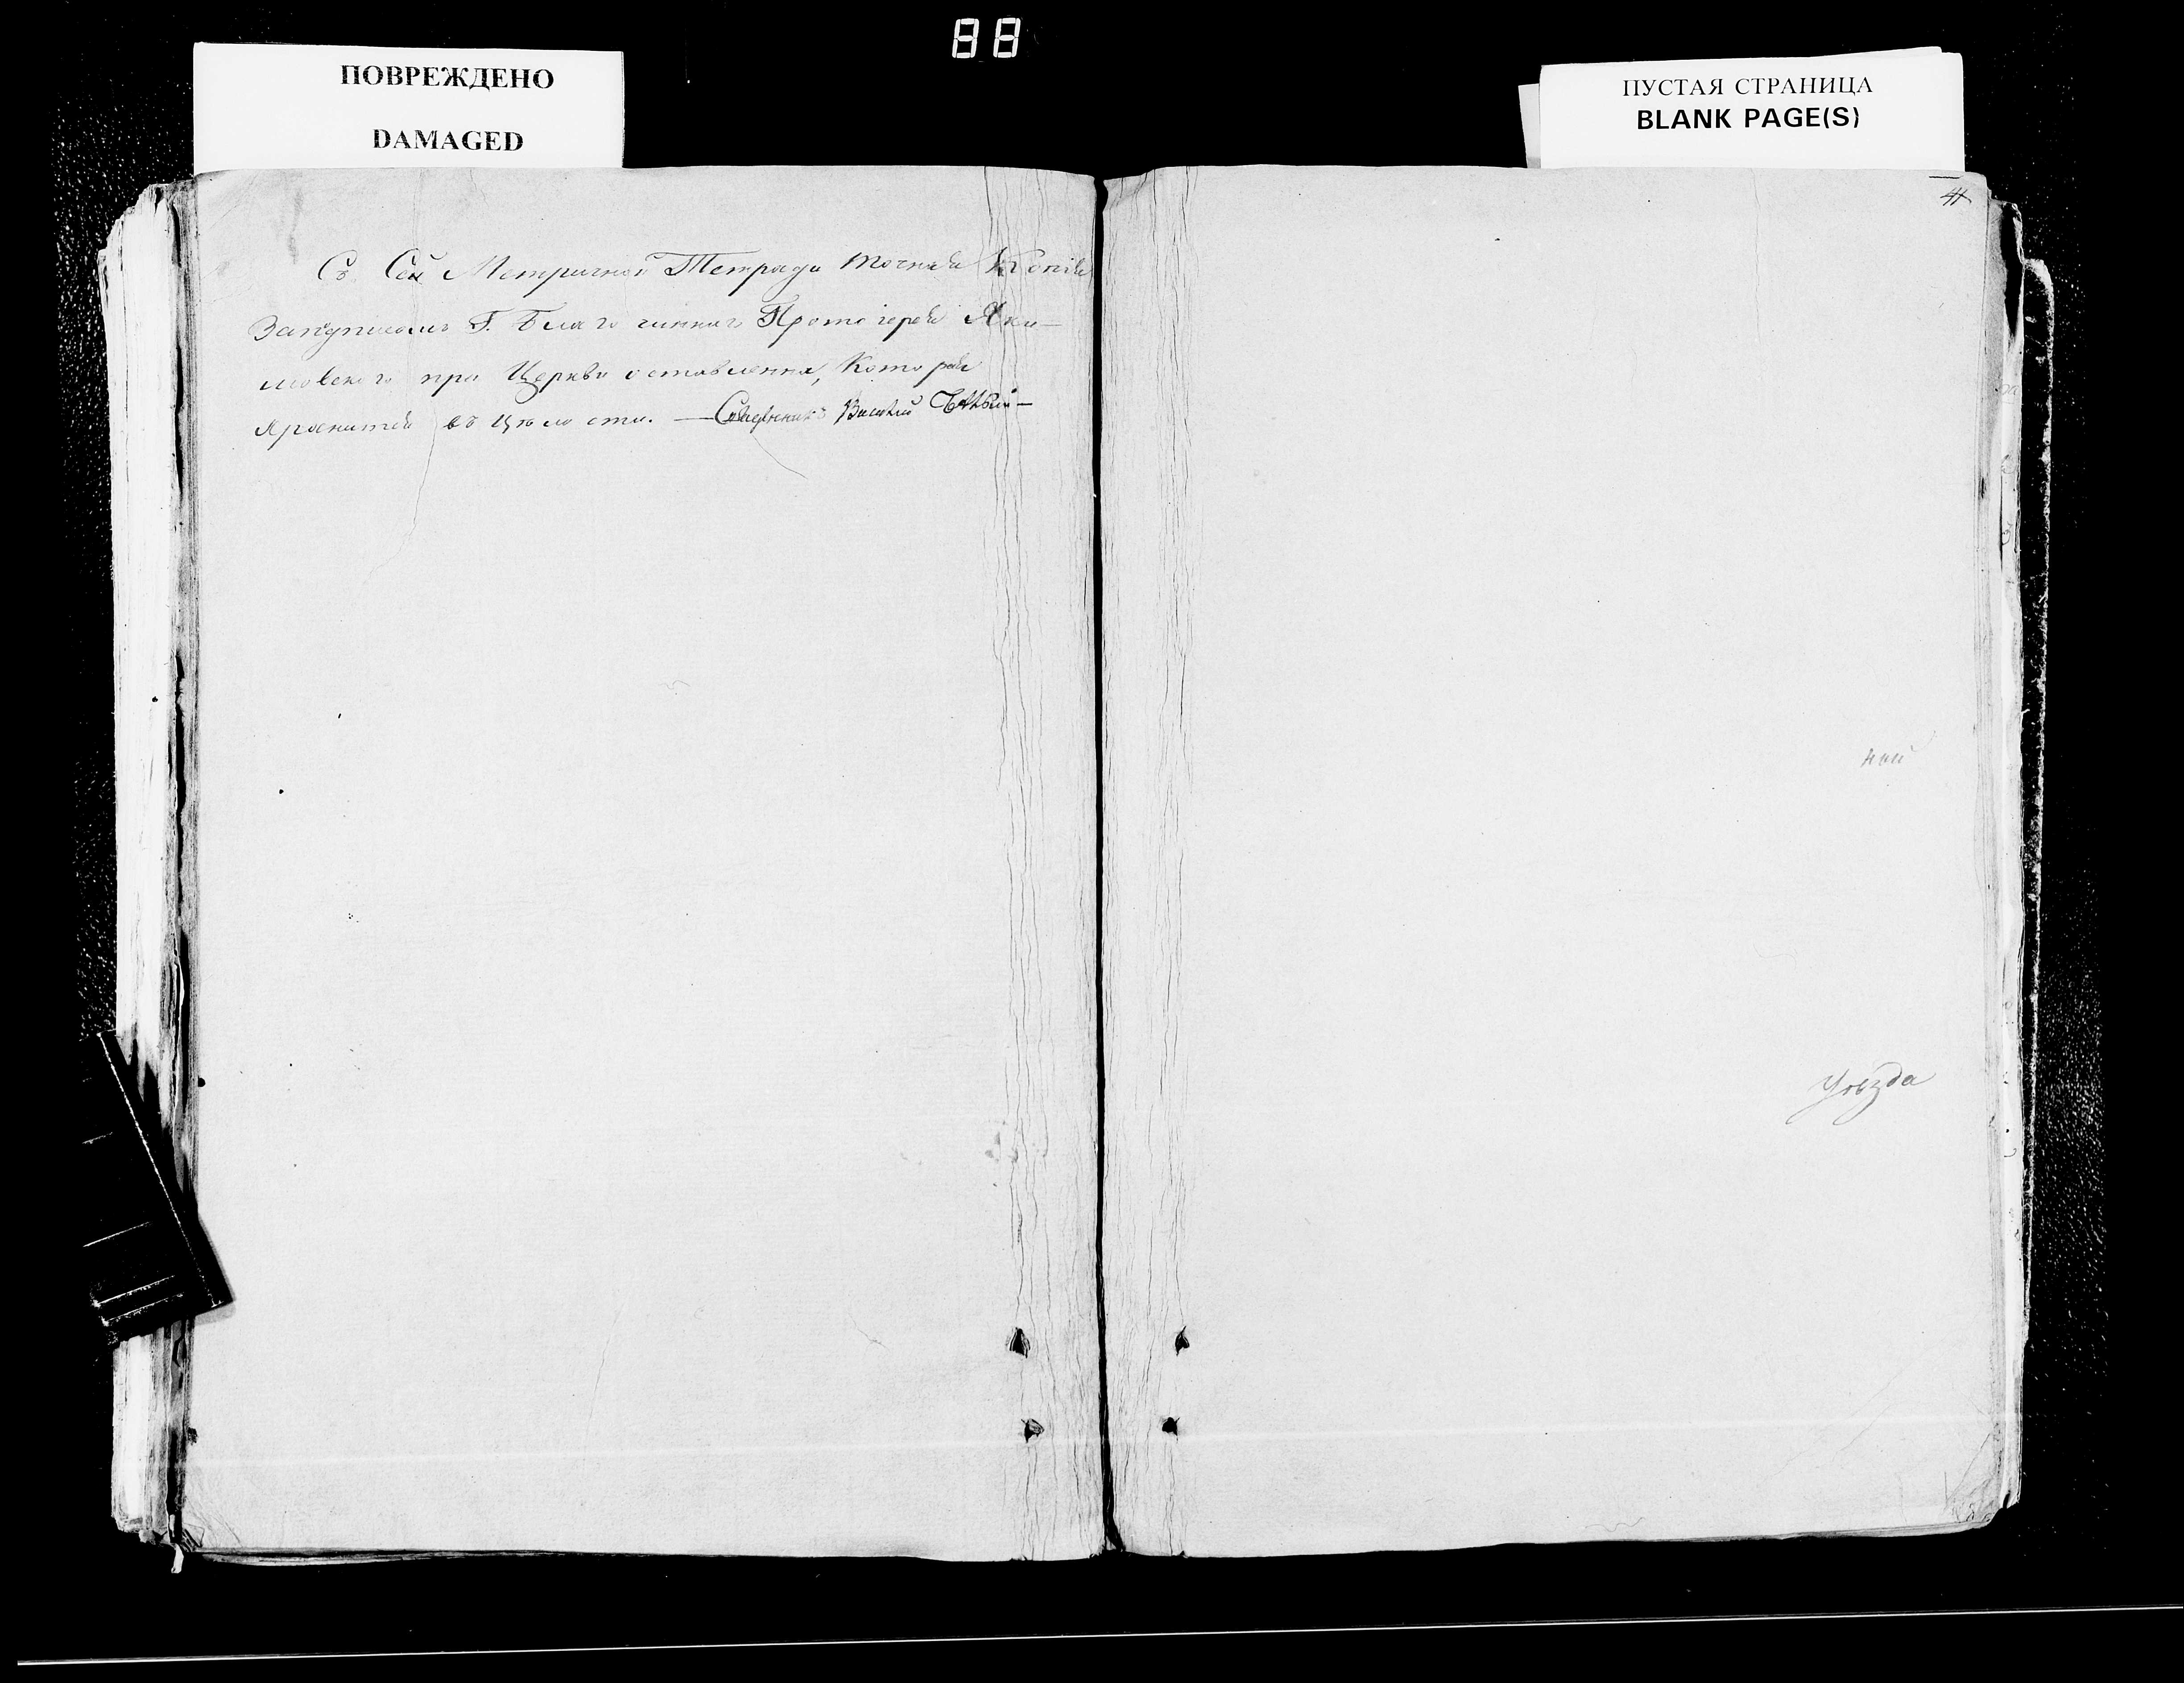 88
ПОВРЕЖДЕНО
DAMAGED
ПУСТАЯ СТРАНИЦА
BLANK PAGE(S)
Съ Сей Метричной Тетради точная Копія
За подписомъ Г. Благочиннаго Протоіерея Яки-
мовскаго при Церкви оставленна, Которая
хранится въ цѣлости. — Священникъ Василій
ный
Уѣзда